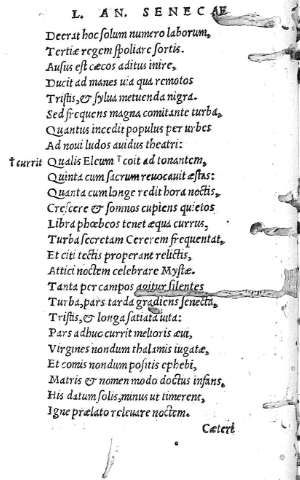 L. AN. SENECAE
Deerat hoc solum numero laborum,
Tertiæ regem spoliare sortis.
Ausus est cæcos aditus inire,
Ducit ad manes uia qua remotos
Tristis, & sylua metuenda nigra.
Sed frequens magna comitante turba,
Quantus incedit populus per urbes
Ad noui ludos auidus theatri:
† currit Qualis Eleum † coit ad tonantem,
Quinta cum sacrum reuocauit æstas:
Quanta cum longe redit hora noctis,
Crescere & somnos cupiens quietos
Libra phœbeos tenet æqua currus,
Turba secretam Cererem frequentat,
Et citi tectis properant relictis,
Attici noctem celebrare Mystæ.
Tanta per campos agitur silentes
Turba, pars tarda gradiens senecta,
Tristis, & longa satiata uita:
Pars adhuc currit melioris æui,
Virgines nondum thalamis iugatæ,
Et comis nondum positis ephebi,
Matris & nomen modo doctus infans,
His datum solis, minus ut timerent,
Igne prælato releuare noctem.
Cæteri